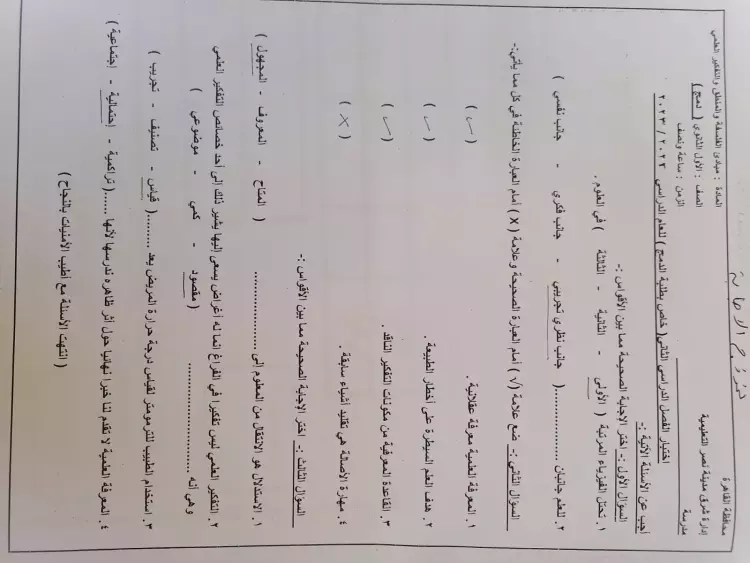 نموذج الاجابة
محافظة القاهرة
إدارة شرق مدينة نصر التعليمية
مدرسة
المادة : مبادئ الفلسفة والمنطق والتفكير العلمي
الصف : الأول الثانوي ( دمج )
الزمن : ساعة ونصف
اختبار الفصل الدراسي الثاني( خاص بطلبة الدمج ) للعام الدراسي ٢٠٢٢ / ٢٠٢٣
أجب عن الأسئلة الآتية :-
السؤال الأول :- اختر الإجابة الصحيحة مما بين الأقواس :-
١. تحتل الفيزياء المرتبة ( الأولى - الثانية - الثالثة ) في العلوم .
٢. للعلم جانبان ..................( جانب نظري تجريبي - جانب فكري - جانب نفسي )
السؤال الثاني :- ضع علامة (√ ) أمام العبارة الصحيحة وعلامة ( X ) أمام العبارة الخاطئة في كل مما يأتي:-
١. المعرفة العلمية معرفة عقلانية . ( ✓ )
٢. هدف العلم السيطرة على أخطار الطبيعة . ( ✓ )
٣. القاعدة المعرفية من مكونات التفكير الناقد . ( ✓ )
٤. مهارة الأصالة هي تقليد أشياء سابقة . ( X )
السؤال الثالث :- اختر الإجابة الصحيحة مما بين الأقواس :-
١. الاستدلال هو الانتقال من المعلوم إلى .................. ( المتاح - المعروف - المجهول )
٢. التفكير العلمي ليس تفكيرا في الفراغ إنما له أغراض يسعى إليها يشير ذلك إلى أحد خصائص التفكير العلمي
وهي أنه .................. ( مقصود - كمي - موضوعي )
٣. استخدام الطبيب للترمومتر لقياس درجة حرارة المريض يعد .........( قياس - تصنيف - تجريب )
٤. المعرفة العلمية لا تقدم لنا خبرا نهائيا حول أثر ظاهره ندرسها لأنها ......( تراكمية - إحتمالية - إجتماعية )
( انتهت الأسئلة مع أطيب الأمنيات بالنجاح )